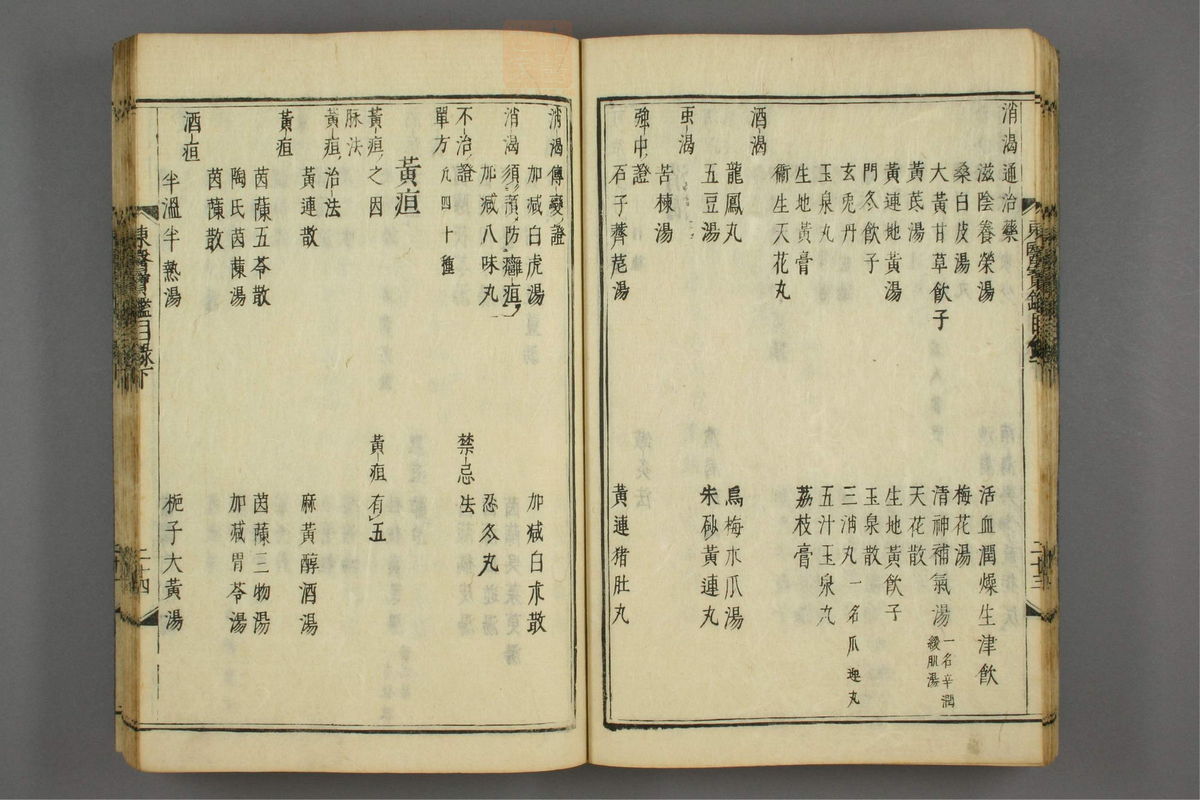 消渴通治藥
滋陰養榮湯
活血潤燥生津飲
桑白皮湯
梅花湯
大黃甘草飲子
清神補氣湯 一名辛潤緩肌湯
黃芪湯
天花散
黃連地黃湯
生地黃飲子
門冬飲子
玉泉散
玄兎丹
三消丸 一名爪連丸
玉泉丸
五汁玉泉丸
生地黃膏
荔枝膏
衞生天花丸
酒渴
龍鳳丸
烏梅木瓜湯
五豆湯
朱砂黃連丸
䖝渴
苦楝湯
強中證
石子薺苨湯
黃連猪肚丸
東醫寶鑑目錄下
二十三
消渴傳變證
加减白虎湯
加减白朮散
消渴須預防癰疽
加减八味丸
忍冬丸
不治證
禁忌法
單方 凡四十種
黃疸
黃疸之因
黃疸有五
脉法
黃疸治法
黃連散
麻黃醇酒湯
黃疸
茵蔯五苓散
茵蔯三物湯
陶氏茵蔯湯
加减胃苓湯
茵蔯散
酒疸
半溫半熱湯
梔子大黃湯
東醫寶鑑目錄下
二十四